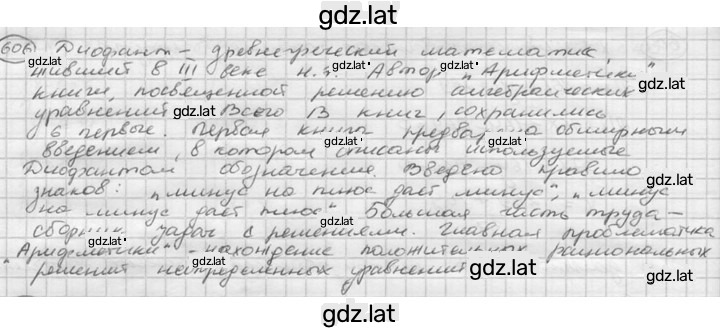 gdz.lat
606 Диофант – древнегреческий математик,
живший в III веке н.э. Автор „Арифметики"
книги, посвещенной решению алгебраических
уравнений. Всего 13 книг, сохранились
6 первые. Первая книга предварена обширным
введением, в котором описаны используемые
Диофантом обозначение. Введено правило
знаков: „минус на плюс даёт минус"; „минус
на минус даёт плюс". Большая часть труда –
сборник задач с решениями. Главная проблематика
„Арифметики" – нахождение положительных рациональных
решений неопределенных уравнений
gdz.lat
gdz.lat
gdz.lat
gdz.lat
gdz.lat
gdz.lat
gdz.lat
gdz.lat
gdz.lat
gdz.lat
gdz.lat
gdz.lat